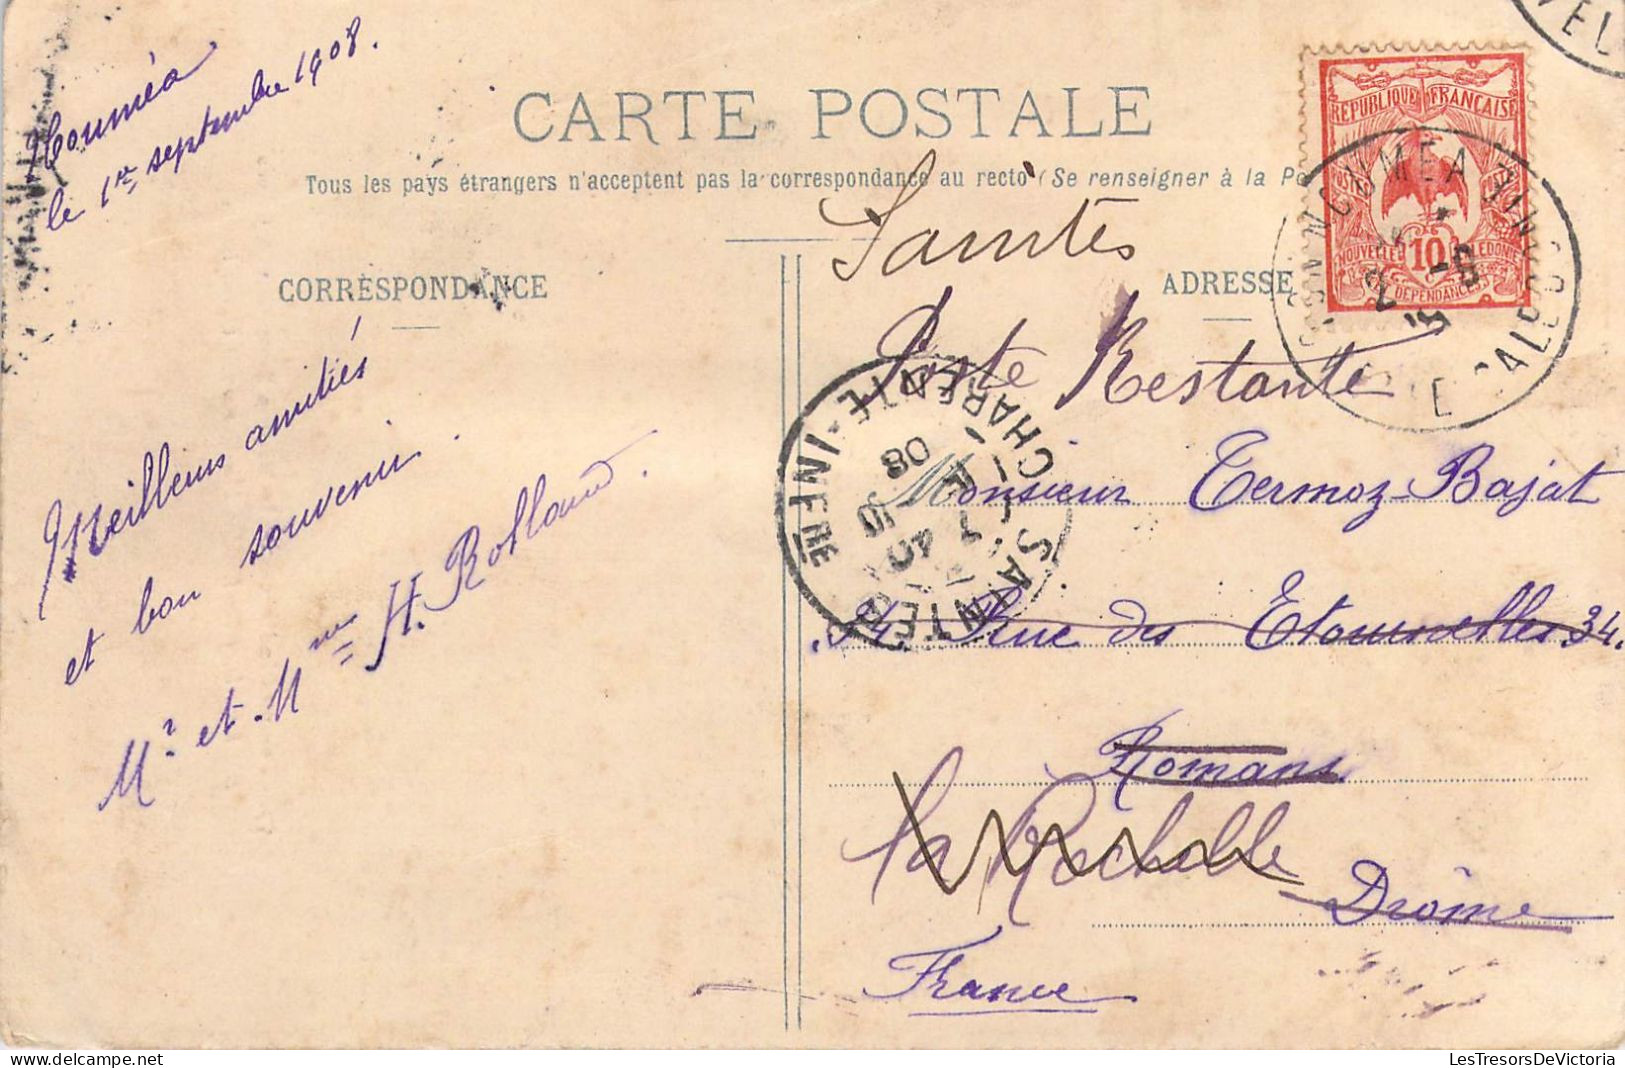 Nouméa
le 1er septembre 1908.
CARTE POSTALE
Tous les pays étrangers n'acceptent pas la correspondance au recto (Se renseigner à la Po
CORRESPONDANCE
ADRESSE
Meilleurs amitiés
et bon souvenir.
Mr et Mme H. Rolland.
Saintes
Poste Restante
Monsieur Termoz-Bajat
34 Rue des Etournelles 34.
Romans
La Rochelle
Drôme
France
REPUBLIQUE FRANÇAISE
POSTES
POSTES
NOUVELLE CALEDONIE
10
DEPENDANCES
NOUMEA
Nlle CALEDONIE
SAINTES
CHARENTE-INFRE
08
LesTresorsDeVictoria